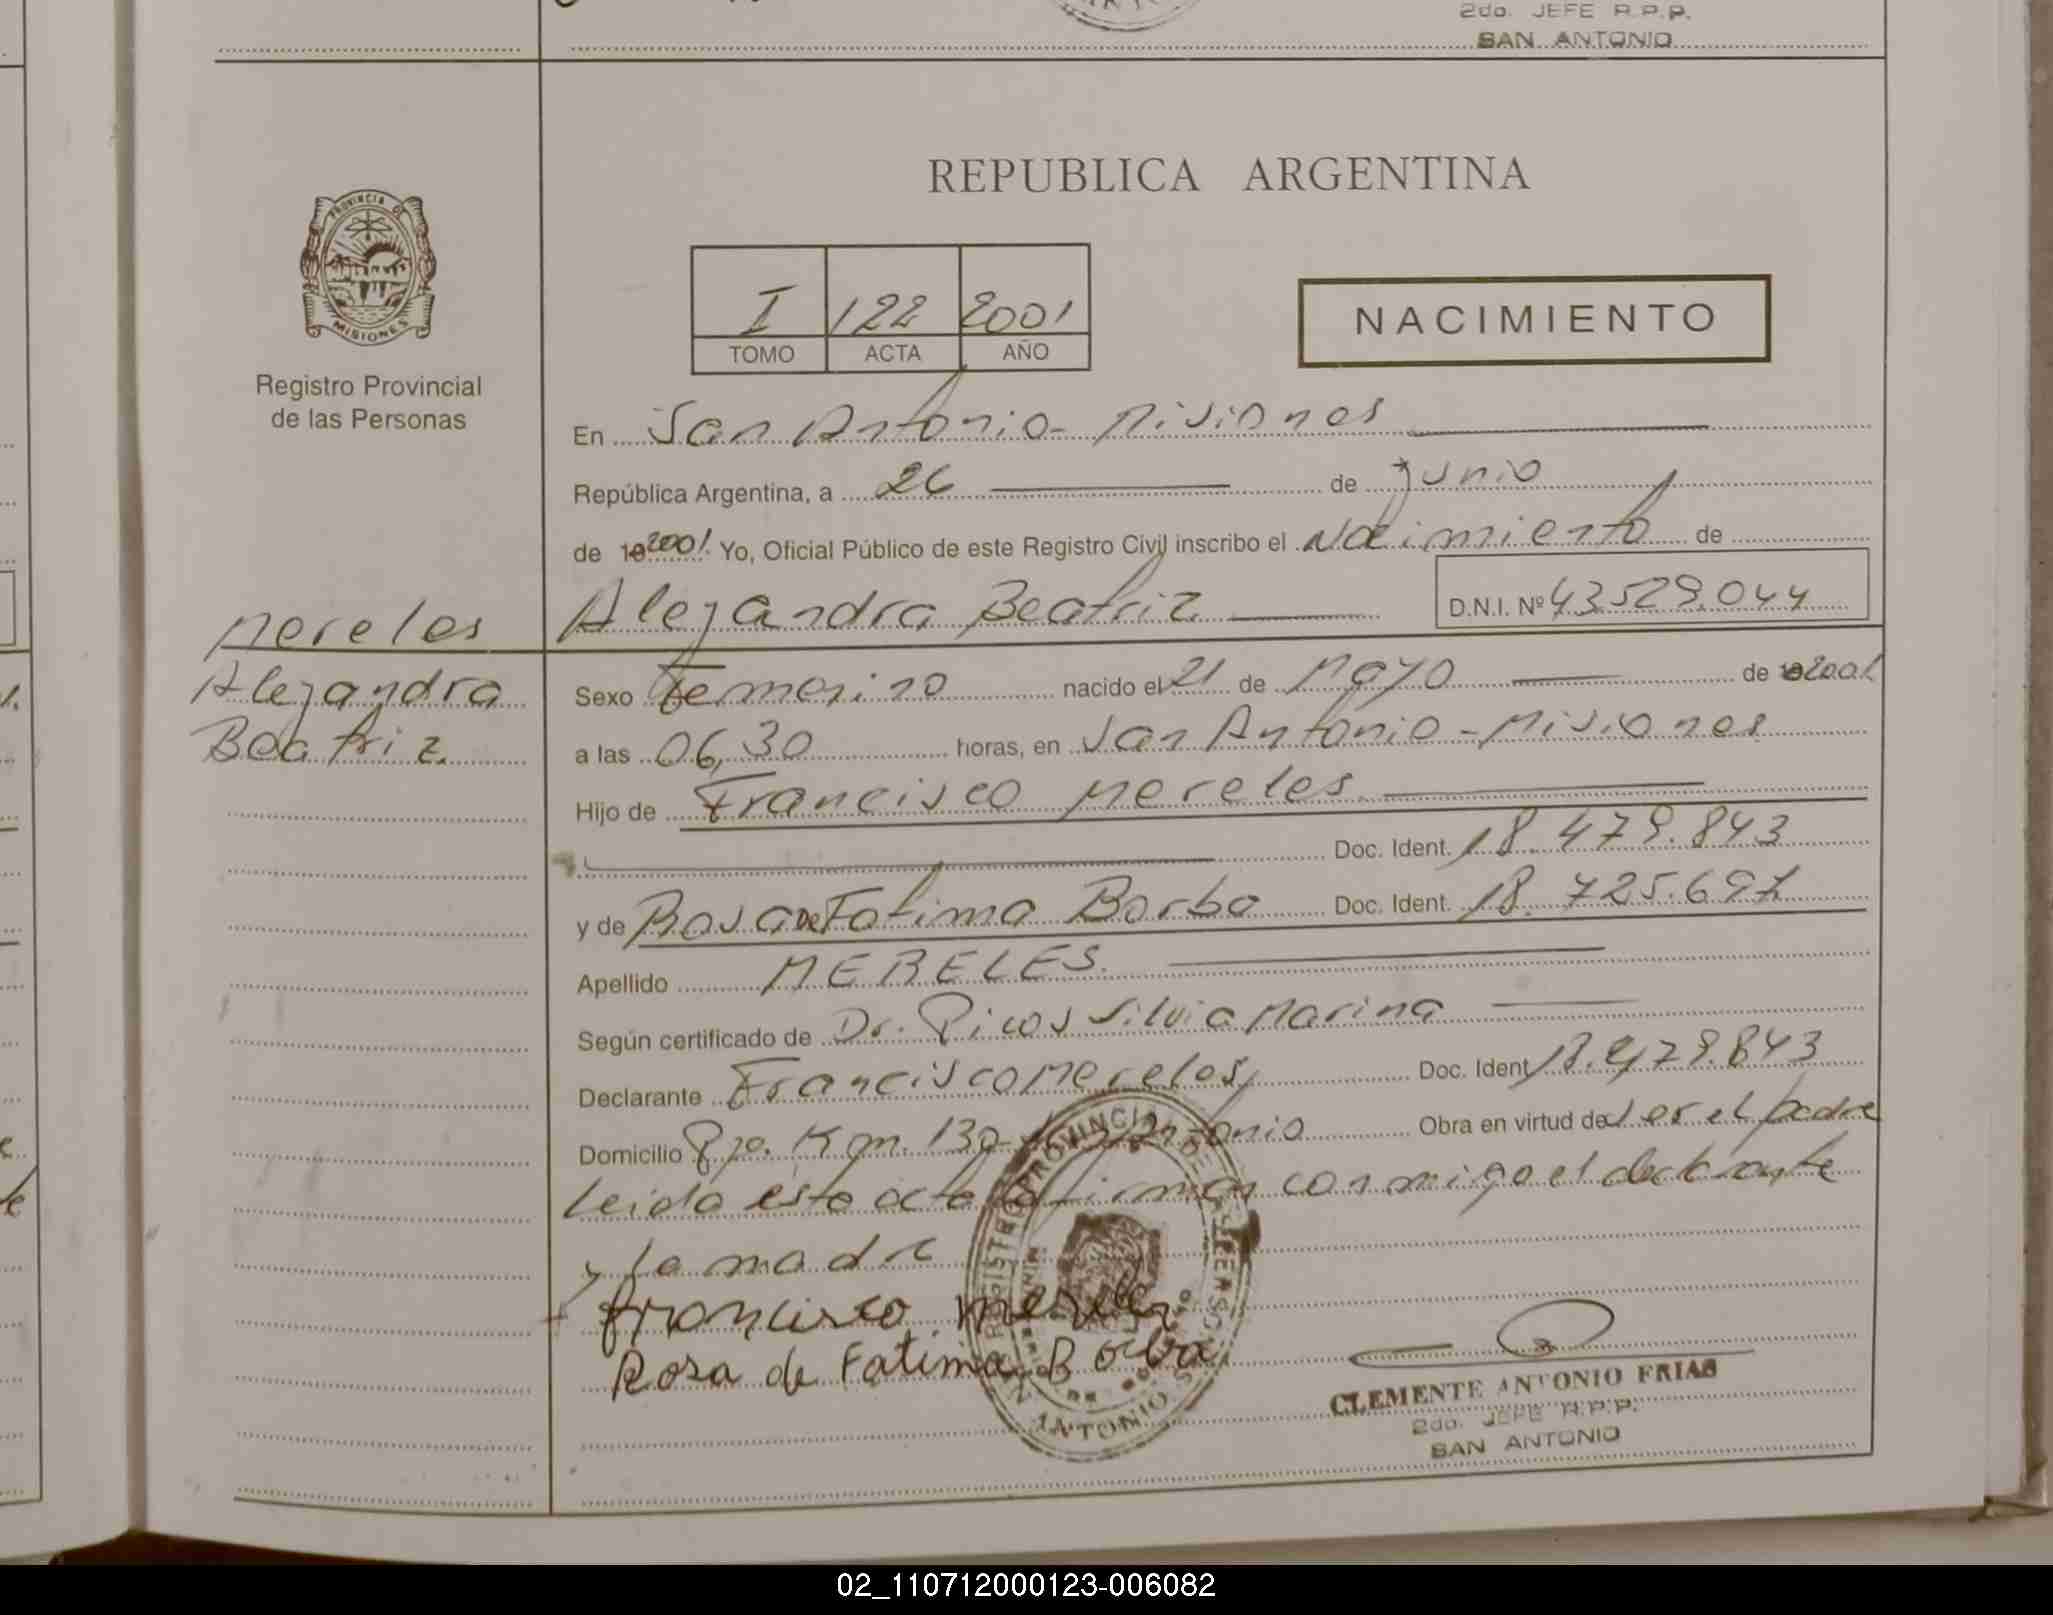 2do. JEFE R.P.P.
SAN ANTONIO
PROVINCIA DE
MISIONES
Registro Provincial
de las Personas
REPUBLICA ARGENTINA
I 122 2001
TOMO ACTA AÑO
NACIMIENTO
En San Antonio - Misiones
República Argentina, a 26 de junio
de 2001 Yo, Oficial Público de este Registro Civil inscribo el Nacimiento de
Mereles
Alejandra
Beatriz
Alejandra Beatriz D.N.I. Nº 43.529.044
Sexo Femenino nacido el 21 de Mayo de 2001
a las 06,30 horas, en San Antonio - Misiones
Hijo de Francisco Mereles
Doc. Ident. 18.479.843
y de Rosa de Fatima Borba Doc. Ident. 18.725.697
Apellido MERELES
Según certificado de Dr. Picos Silvia Marina
Declarante Francisco Mereles Doc. Ident 18.479.843
Domicilio Pzo. Km. 130 - San Antonio Obra en virtud de ser el padre
Leida este acta la firman conmigo el declarante
y la madre
Francisco mereles
Rosa de Fatima Borba
CLEMENTE ANTONIO FRIAS
2do. JEFE R.P.P.
SAN ANTONIO
02_110712000123-006082